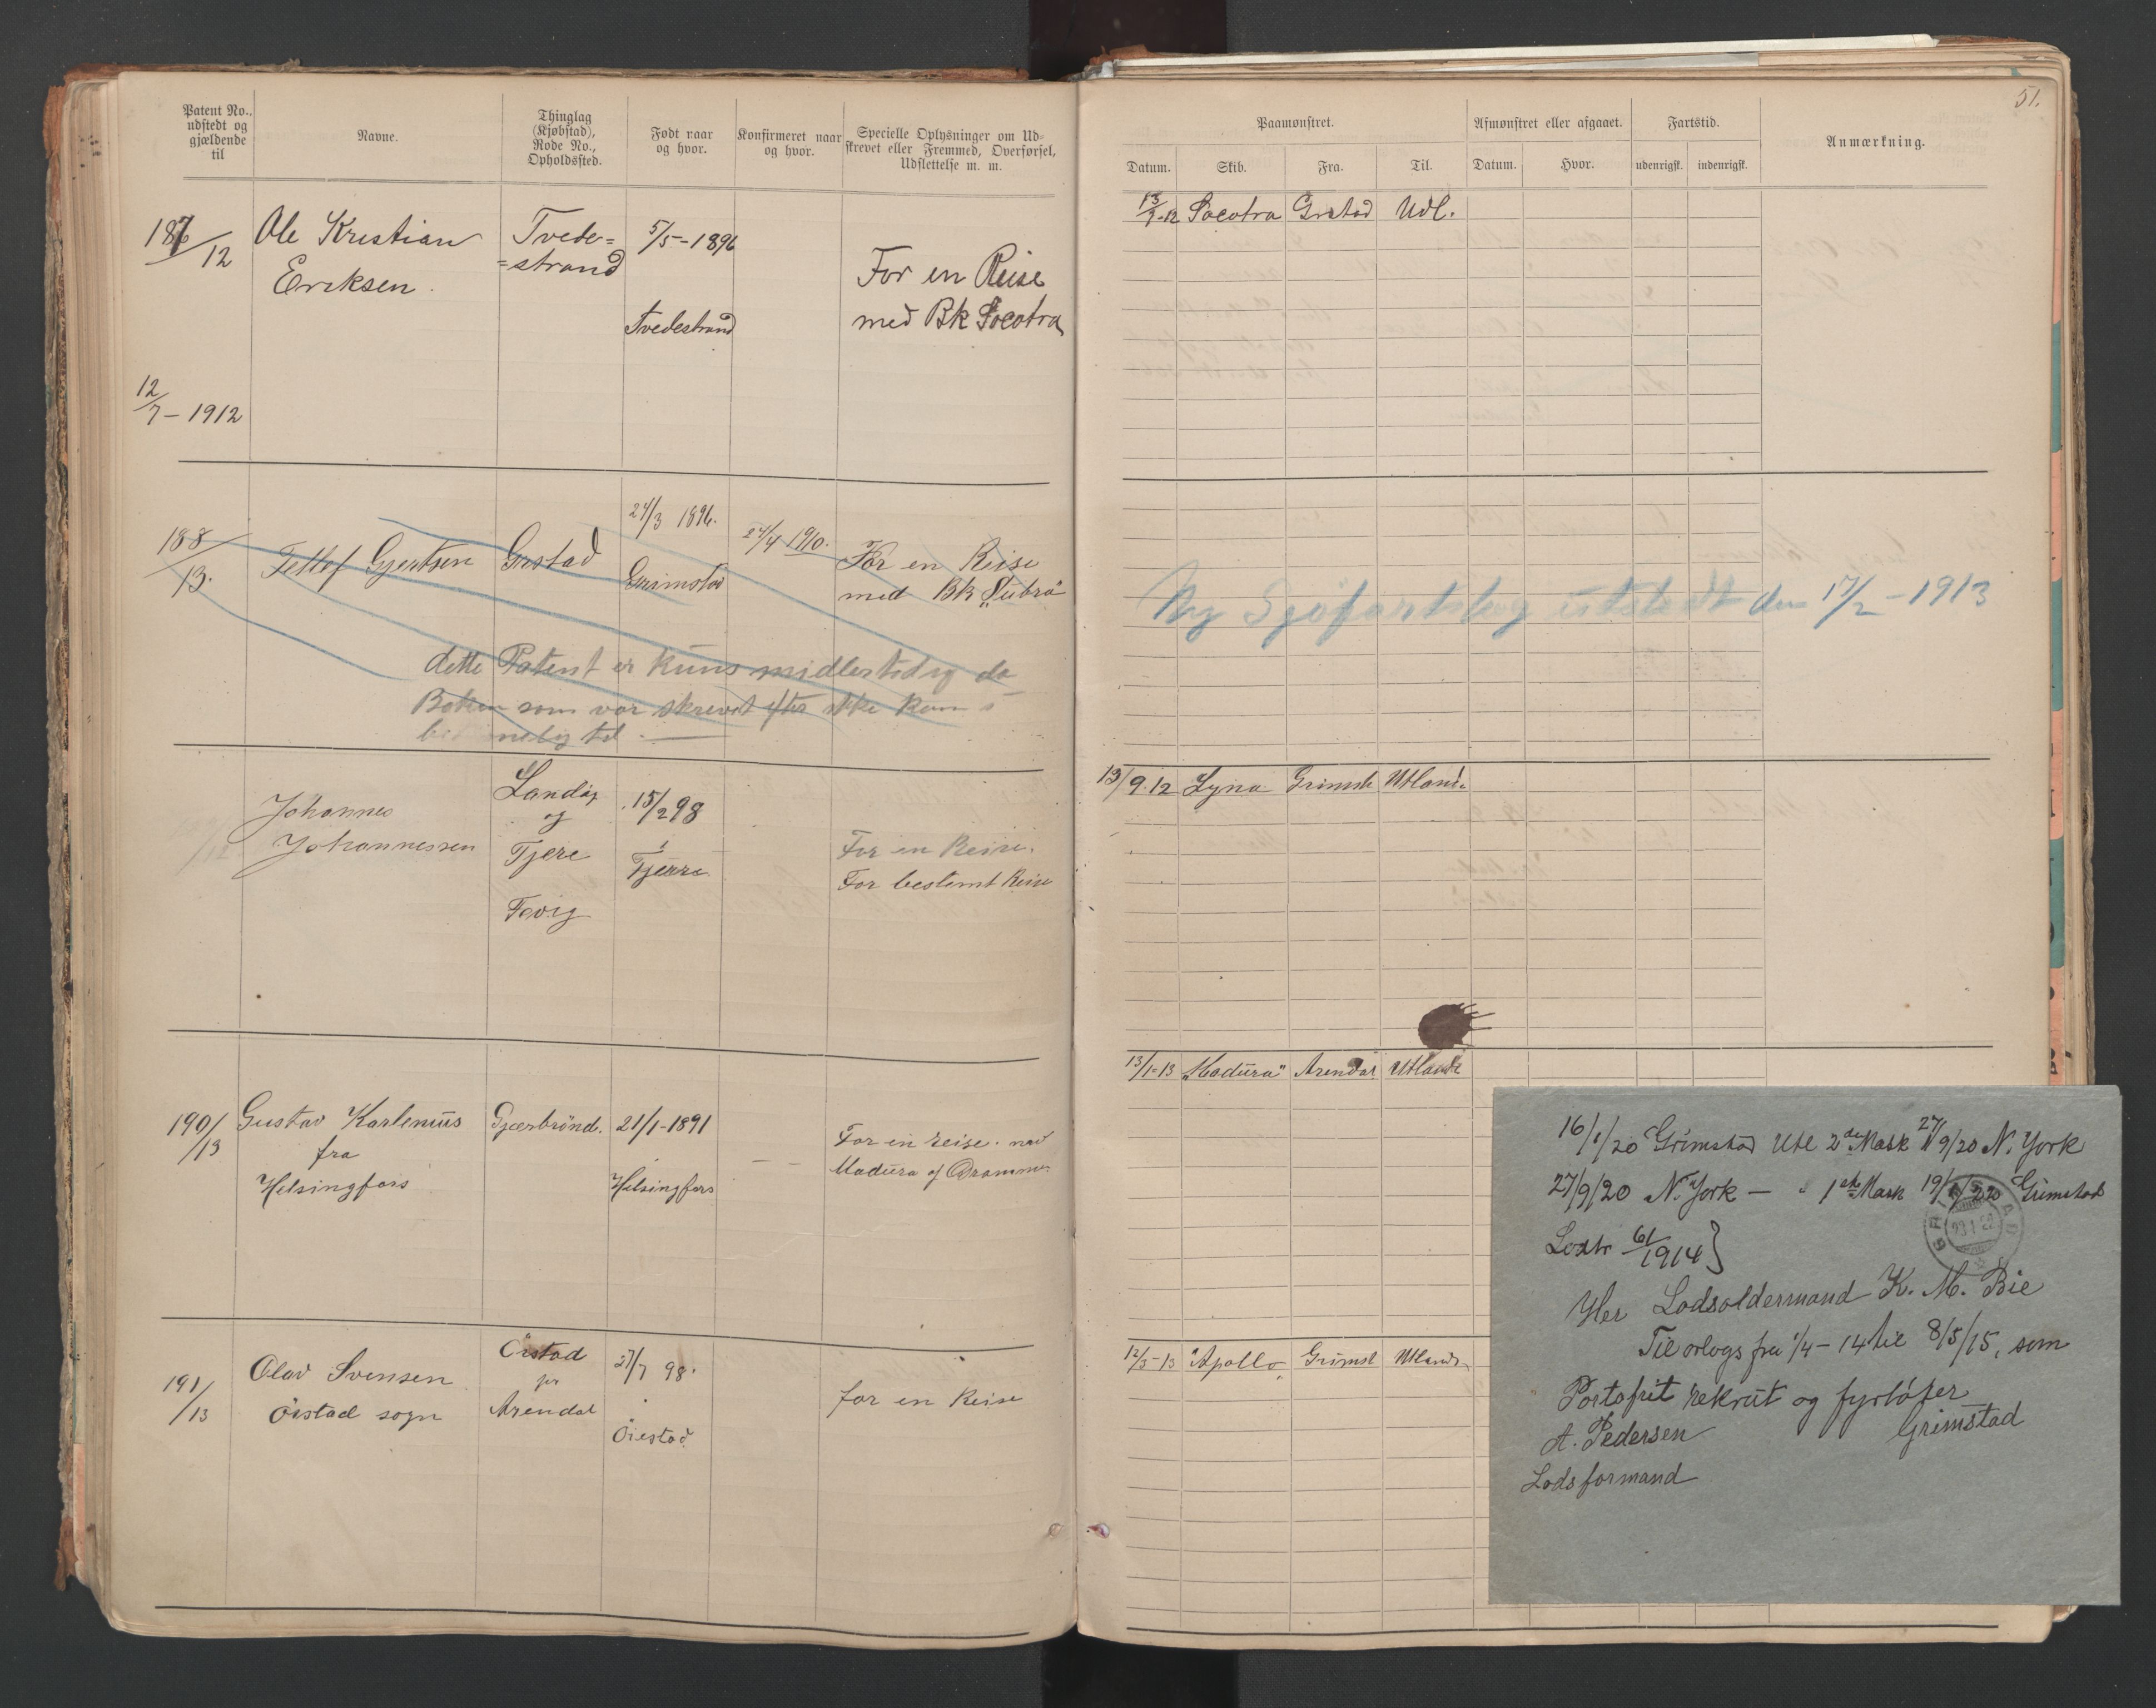 Patent No., udstedt og gjældende til
Navne.
Thinglag (Kjøbstad), Rode No., Opholdssted.
Født naar og hvor.
Konfirmeret naar og hvor.
Specielle Oplysninger om Udskrevet eller Fremmed, Overførsel, Udslettelse m. m.
187/12
Ole Kristian
Eriksen.
Tvede=
=strand
5/5-1896
Tvedestrand
For en Reise
med Bk Socotra
12/7-1912
188/13.
Tellef Gjertsen
Grstad
24/3 1896.
Grimstad
24/4 1910.
For en Reise
med Bk „Subra"
dette Patent er kuns midlertidig da
Boken som var skrevet efter ikke kom
til
Johannes
Johannessen
Landvig
og
Fjere
Fevig
15/2 98
Fjerre
For en Reise.
For bestemt Reise
190/13
Gustav Karlenius
fra
Helsingfors
Gjærbrönd.
21/1-1891
Helsingfors
For en reise. med
Madura af
191/13
Olav Svensen
Öistad sogn
Öistad
pr
Arendal
27/7 98.
Öiestad.
for en Reise
51.
Paamønstret.
Afmønstret eller afgaaet.
Fartstid.
Anmærkning.
Datum.
Skib.
Fra.
Til.
Datum.
Hvor.
udenrigsk.
indenrigsk.
13/7-12 Socotra Grstad Udl.
Ny Sjöfartsbog utstedt den 17/2-1913
13/9.12 Lyna Grimst Utland.
13/1-13 „Madura" Arendal Utlandt
12/3-13 "Apollo„ Grimst Utland
16/1/20 Grimstad Utl 2de Mask 27/9/20 N. York
27/9/20 N. York — " 1ste Mask 19/ Grimstad
61/1914}
Her Lodsoldermand K. M. Bie
Til orlogs fra 1/4-14 til 8/5/15, som
Portofrit rekrut og fyrböter
A. Pedersen Grimstad
Lodsformand